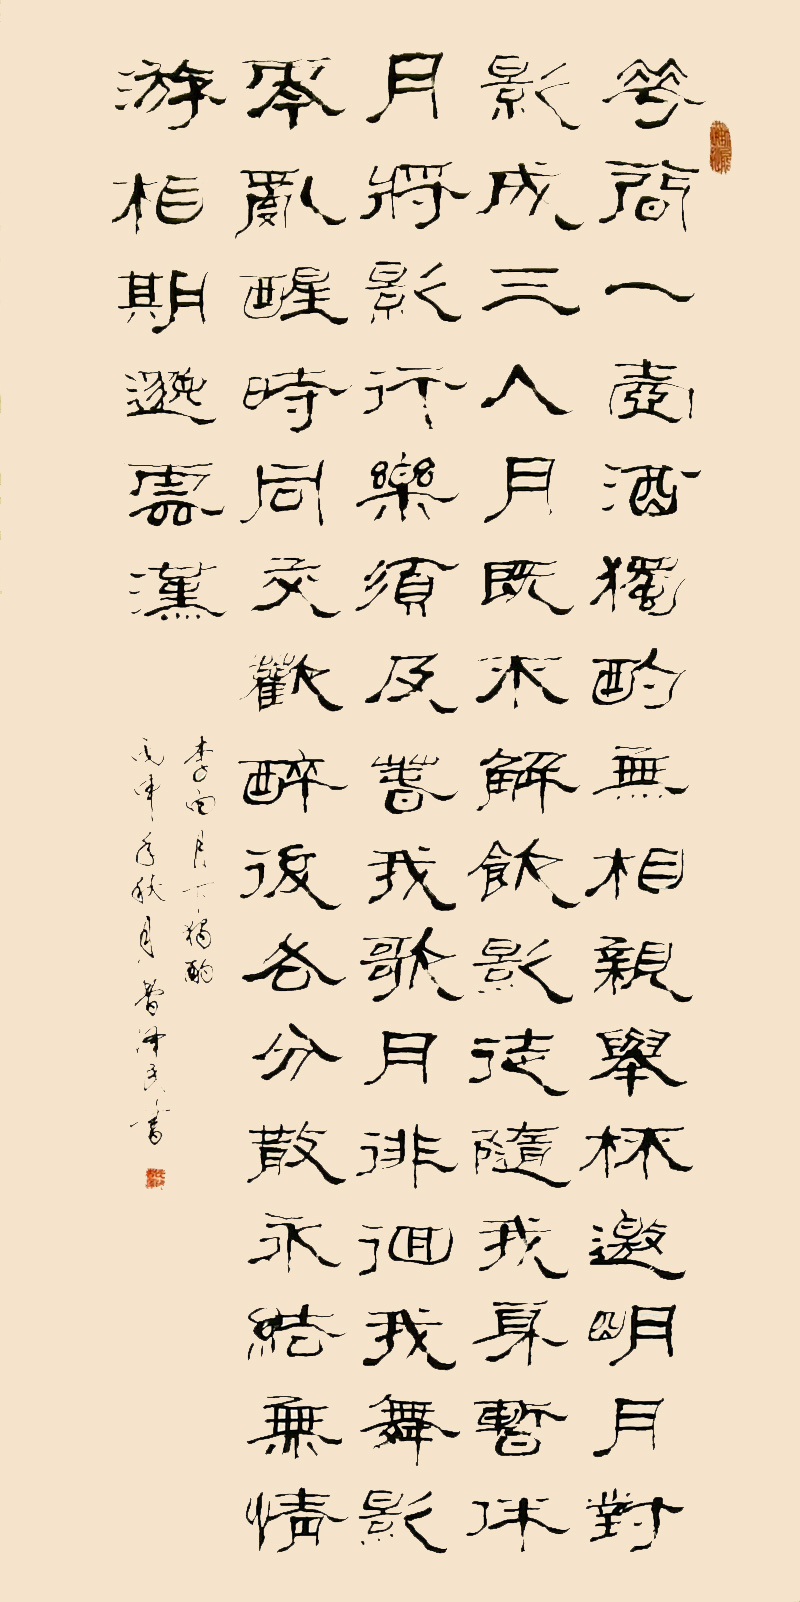 花間一壺酒獨酌無相親舉杯邀明月對
影成三人月既不解飲影徒隨我身暫伴
月將影行樂須及春我歌月徘徊我舞影
零亂醒時同交歡醉後各分散永結無情
游相期邈雲漢
李白月下獨酌
丙申年秋月書